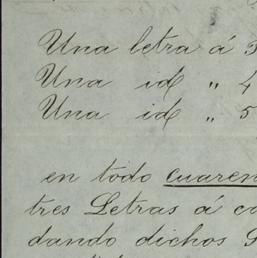 Una letra á
Una id " 4
Una id " 5
en todo cuaren
tres Letras á co
dando dichos